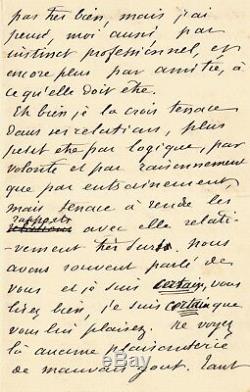 pas très bien, mais j'ai
pensé, moi aussi, par
instinct professionnel, et
encore plus par amitié, à
ce qu'elle doit être.
Eh bien, je la crois tenace
dans ses relations, plus
peut être par logique, par
volonté et par raisonnement
que par entrainement,
mais tenace à rendre les
rapports
avec elle relati-
vement très surs. Nous
avons souvent parlé de
vous et je suis certain, vous
lisez bien, je suis certain que
vous lui plaisez. Ne voyez
là aucune plaisanterie
de mauvais gout. Tant
ebay